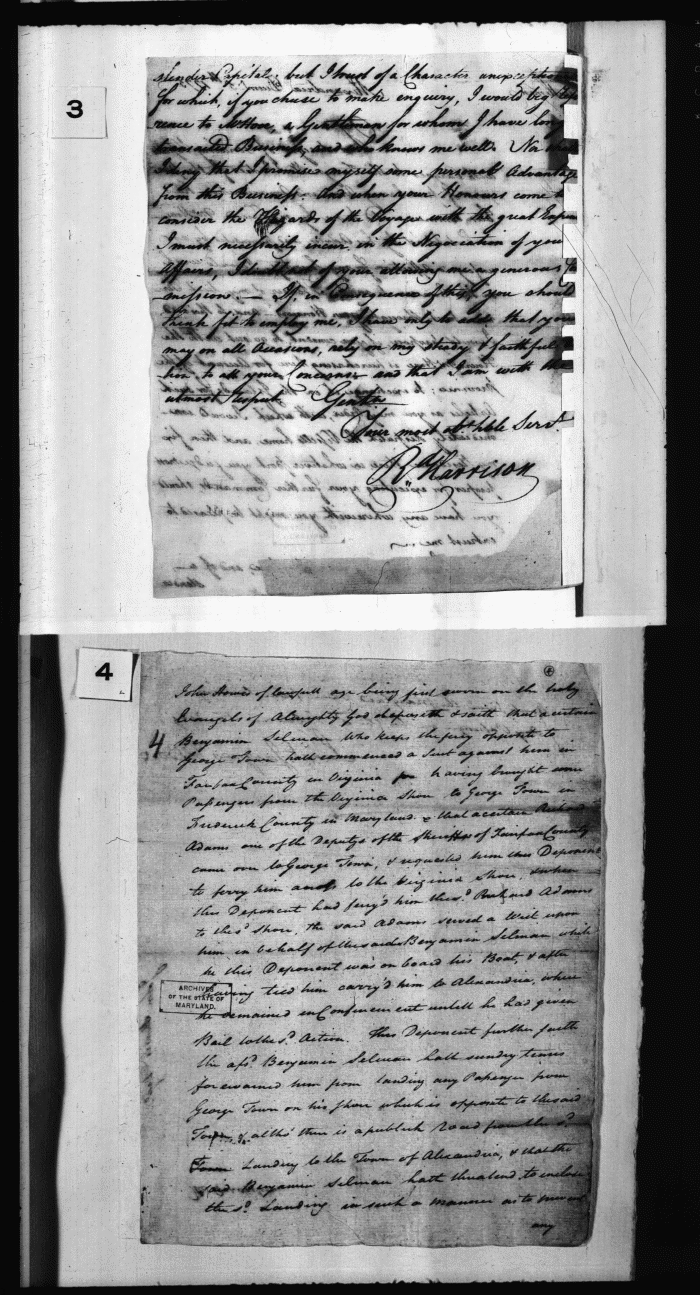 3
slender Capital; but I trust of a Character unexceptiona
for which, if you chuse to make enquiry, I would beg
rence to Mr Hoe, a Gentleman for whom I have long
transacted Business, and who knows me well. Nor
deny that I promise myself some personal Advantage
from this Business: and when your Honours come to
consider the Hazards of the Voyage with the great Expen
I must necessarily incur in the Negociation of your
Affairs, I doubt not of your allowing me a generous
mission — If in Consequence of this, you should
think fit to employ me, I have only to add that you
may on all Occasions, rely on my steady & faithful
tion to all your Concerns and that I am with the
utmost respect Gentn
Your most obt hble Servt
Rd Harrison
4
4
John of lawfull age being first sworn on the holy
Evangels of Almighty God deposeth & saith that a certain
Benjamin Selman who keeps the ferry opposite to
George Town hath commenced a Suit against him in
Fairfax County in Virginia for having brought some
Passengers from the Virginia Shore to George Town in
Frederick County in Maryland & that a certain Richard
Adams one of the Deputys of the Sheriffs of Fairfax County
came over to George Town, & requested him this Deponent
to ferry him across to the Virginia Shore, & when
this Deponent had ferry'd him the sd Richard Adams
to the sd Shore, the said Adams served a Writ upon
him in behalf of the said Benjamin Selman while
he this Deponent was on board his Boat, & after
having tied him carry'd him to Alexandria, where
he remained in Confinement untill he had given
Bail to the sd Action. This Deponent further saith
the afsd Benjamin Selman hath sundry times
forewarned him from landing any Passenger from
George Town on his Shore which is opposite to the said
Town, & altho' there is a publick Road from the sd
Landing to the Town of Alexandria, & that the
said Benjamin Selman hath threatend to inclose
the sd Landing in such a manner as to prevent
any
ARCHIVES
OF THE STATE OF
MARYLAND.